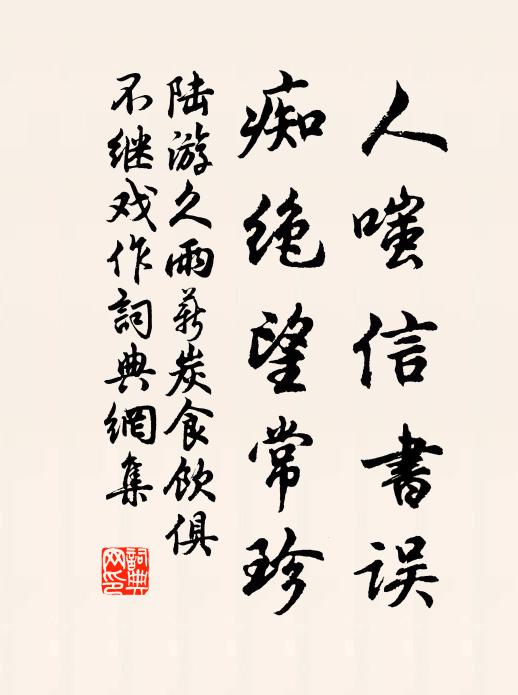 人嗤信书误
痴绝望常珍
陆游久雨薪炭食饮俱
不继戏作词典网集
詞典网印